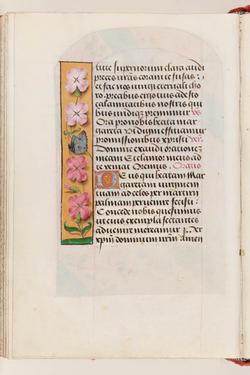 tute supernorum clara audi
preces uras coram te fusas:
et fac nos uniri eternali cho
ro precibus ergo tuis adesto
calamitatibus nostris qui
bus undique premimur. vs
Ora pro nobis beata mar
gareta Ut digni efficiamur
promissionibus xpristi
Domine exaudi orationem
meam Et clamor meus ad
te veniat Oremus. Oratio
Deus qui beatam Mar
garetam virginem
tuam ad celos per martirii
palmam pervenire fecisti:
Concede nobis quesumus
ut eius exempla sectantes
ad te venire mereamur. Per
xpm dominum nrm Amen